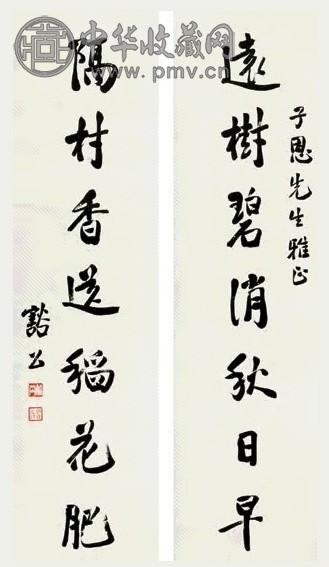 中华收藏网
www.pmv.cn
子恩先生雅正
遠樹碧消秋日早
隔村香送稻花肥
豁公